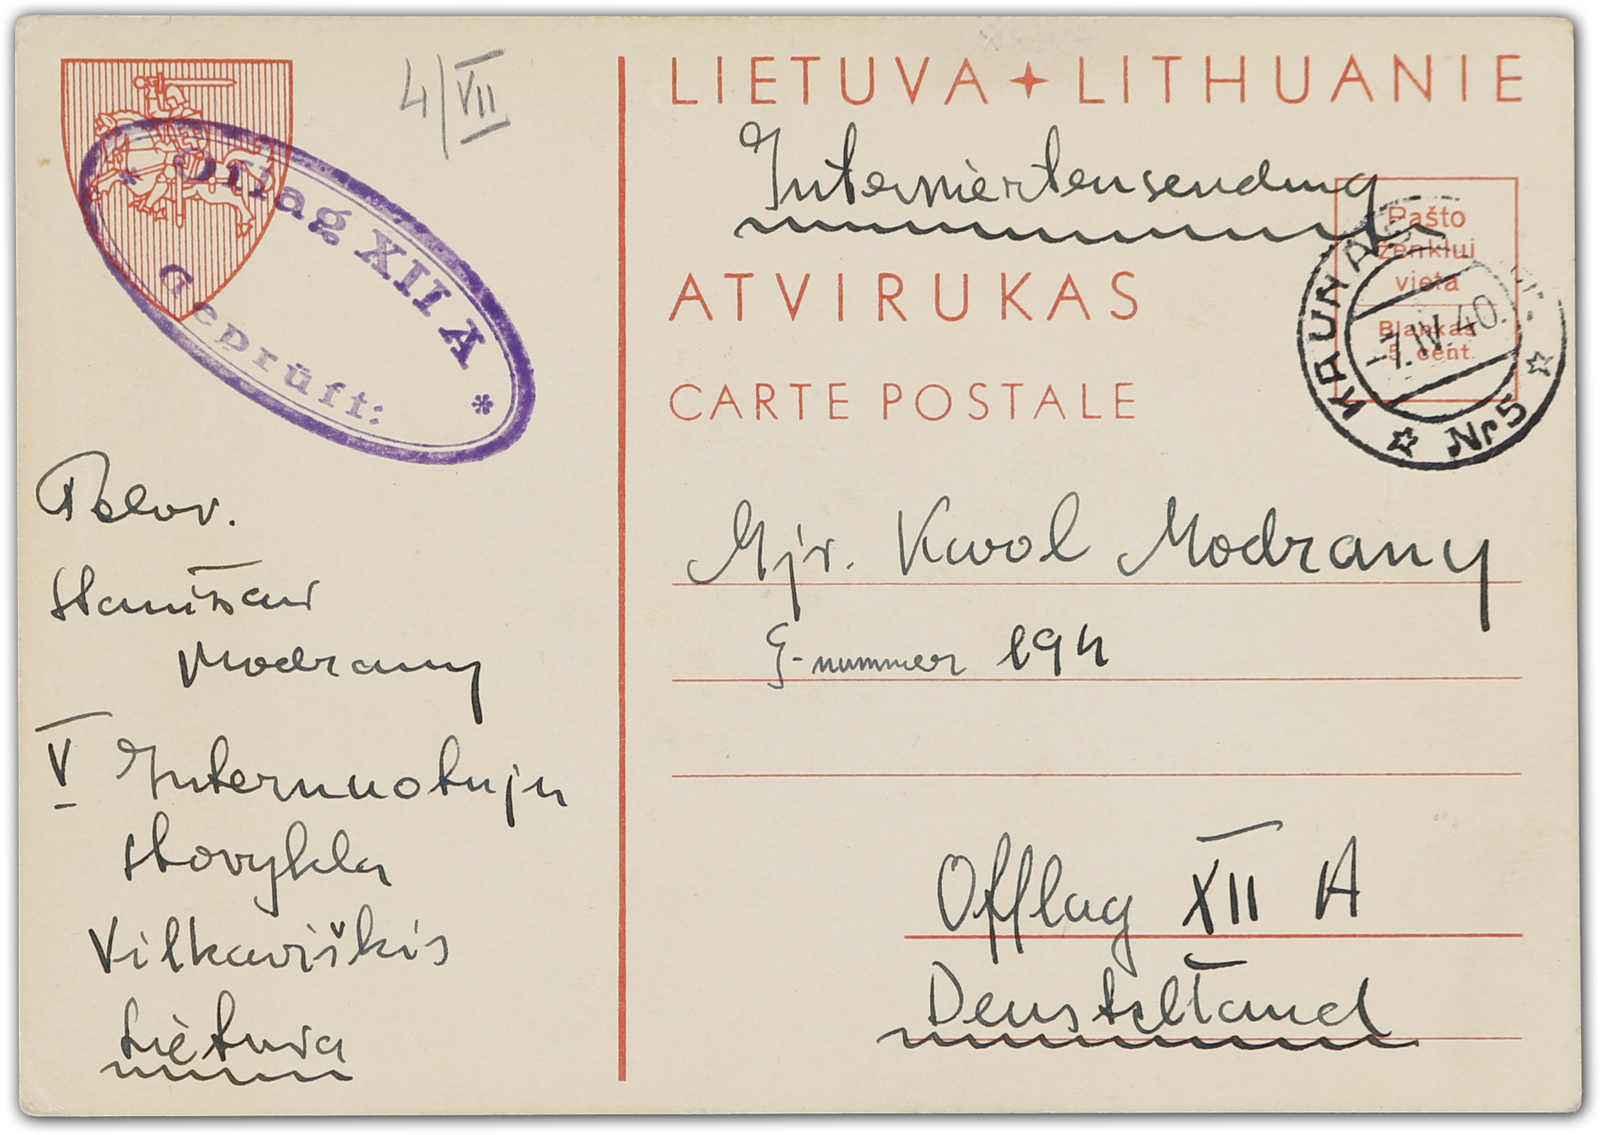 4/VII
Oflag XII A
Geprüft:
LIETUVA LITHUANIE
Interniertensendung
Pašto
ženklui
vieta
Blankas
5 cent.
KAUNAS
-7.IV.40.
Nr 5
ATVIRUKAS
CARTE POSTALE
Mjr. Karol Modrany
G-nummer 194
Offlag XII A
Deustchland
Stanisław
Modrany
V Internuotuju
stovykla
Vilkaviškis
Lietuva